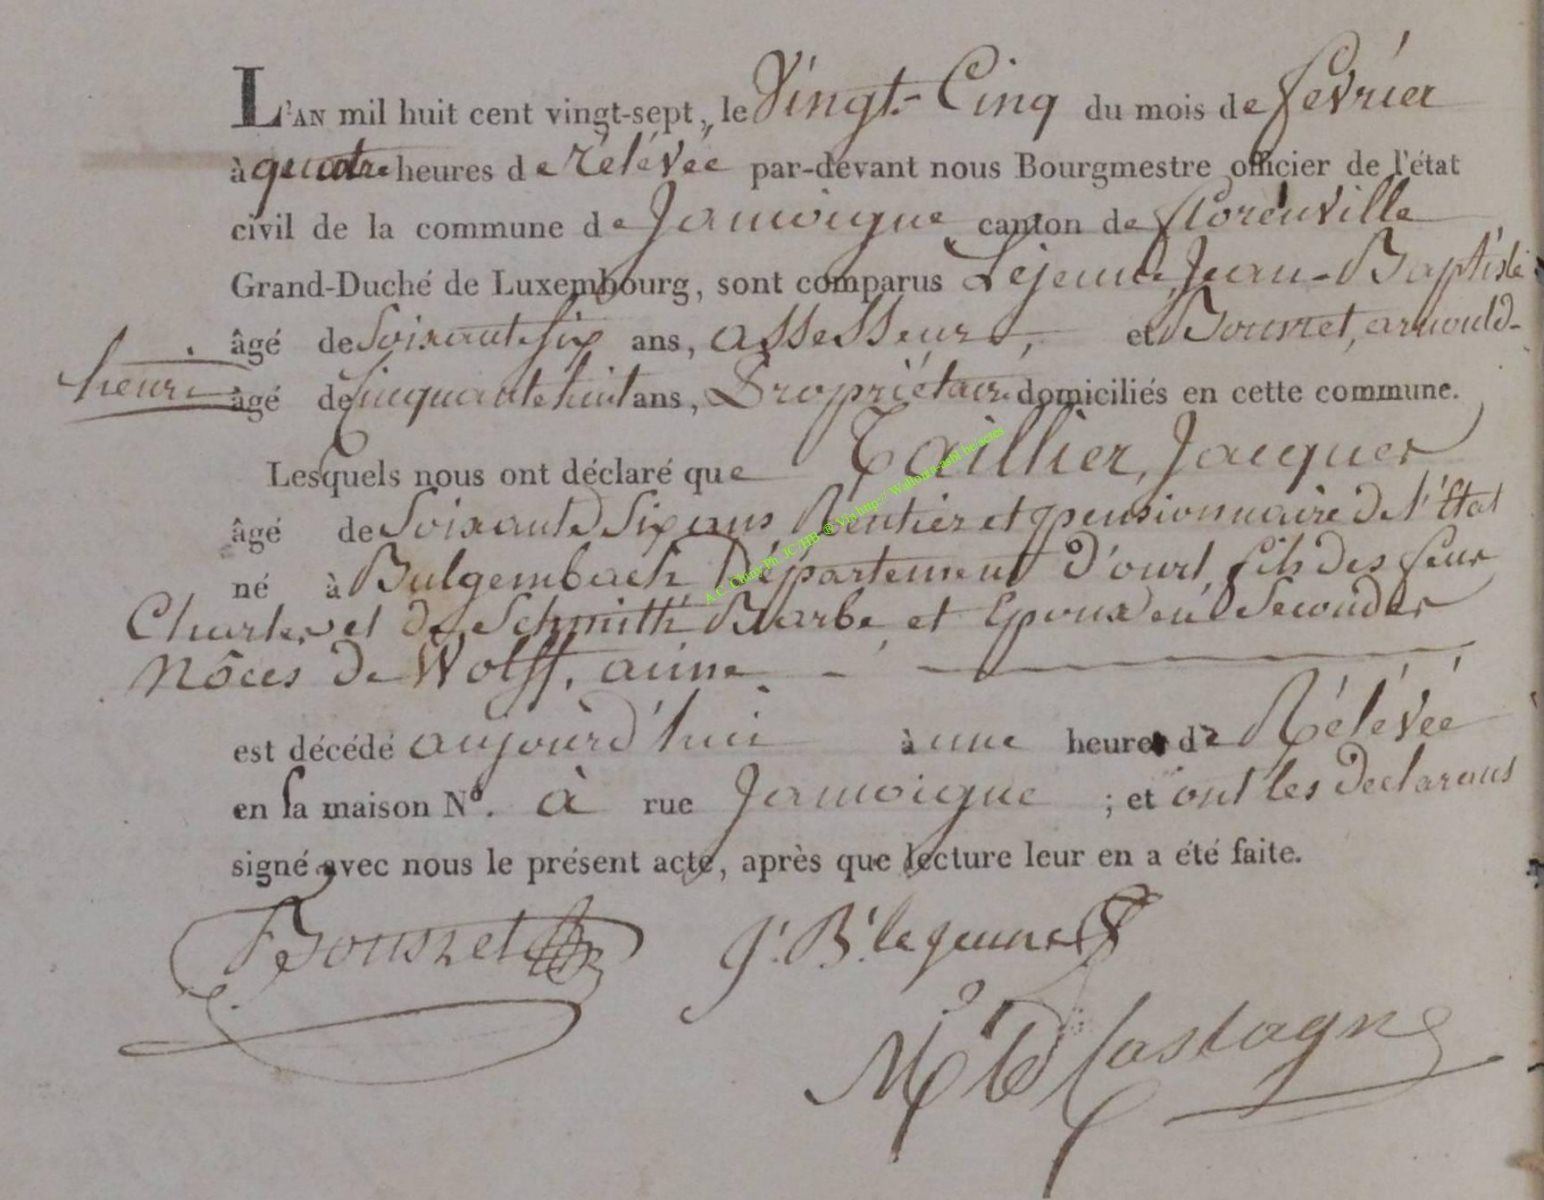 L'AN mil huit cent vingt-sept, le Vingt-Cinq du mois de fevrier
à quatre heures de rélévée par-devant nous Bourgmestre officier de l'état
civil de la commune de Jamoigne canton de florenville
Grand-Duché de Luxembourg, sont comparus Lejeune, Jean-Baptiste
âgé de Soixante six ans, assesseur, et Bournet, arnould-
henri âgé de Cinquante huit ans, Propriétaire domiciliés en cette commune.
Lesquels nous ont déclaré que Taillier, Jacques
âgé de Soixante Six ans Rentier et pensionnaire de l'Etat
né à Bulgembach Département d'ourt, fils des feus
Charles et de Schmith Barbe, et Epoux en Secondes
Nôces de Wolff, anne
est décédé aujourd'hui à une heure de Rélévée
en sa maison N°. à rue Jamoigne ; et ont les declarans
signé avec nous le présent acte, après que lecture leur en a été faite.
J. B. lejeune
Castagne
A.C. Chiny Ph JC/HB ® Vis http:// Wallonia-asbl.be/actes